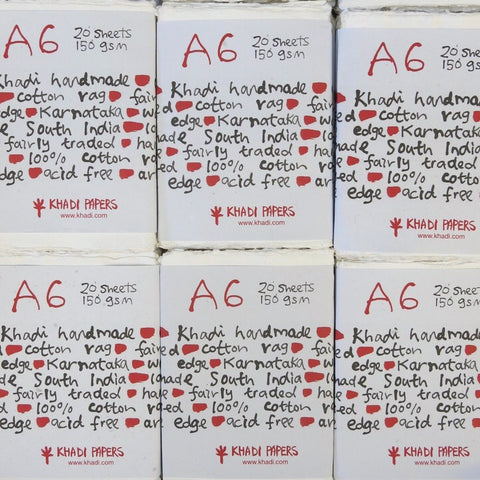 A6
20 sheets
150 gsm
Khadi handmade
cotton rag fair
edge Karnataka
South India
fairly traded
100% cotton
edge acid free
KHADI PAPERS
www.khadi.com
A6
20 sheets
150 gsm
Khadi handmade
ed cotton rag fair
edge Karnataka
South India
fairly traded
ed 100% cotton
edge acid free
KHADI PAPERS
www.khadi.com
A6
20 sheets
150 gsm
Khadi handmade
ed cotton rag
edge Karnataka
South India
fairly traded
ed 100% cotton
edge acid free
KHADI PAPERS
www.khadi.com
A6
20 sheets
150 gsm
Khadi handmade
cotton rag fair
edge Karnataka
South India
fairly traded
100% cotton
edge acid free
KHADI PAPERS
www.khadi.com
A6
20 sheets
150 gsm
Khadi handmade
ed cotton rag fair
edge Karnataka
South India
fairly traded
ed 100% cotton
edge acid free
KHADI PAPERS
www.khadi.com
A6
20 sheets
150 gsm
Khadi handmade
ed cotton rag
edge Karnataka
South India
fairly traded
ed 100% cotton
edge acid free
KHADI PAPERS
www.khadi.com